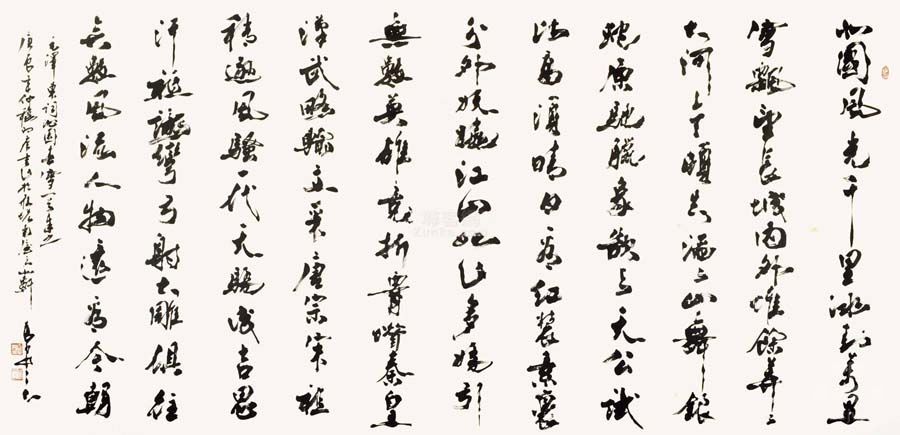 北國風光千里冰封萬里
雪飄望長城内外惟餘莽々
大河上下頓失滔々山舞銀
蛇原馳臘象欲與天公試
比高須晴日看紅裝素裹
分外妖嬈江山如此多嬌引
無數英雄競折腰惜秦皇
漢武略輸文采唐宗宋祖
稍遜風騷一代天驕成吉思
汗祗識彎弓射大雕俱往
矣數風流人物還看今朝
毛澤東詞沁園春雪